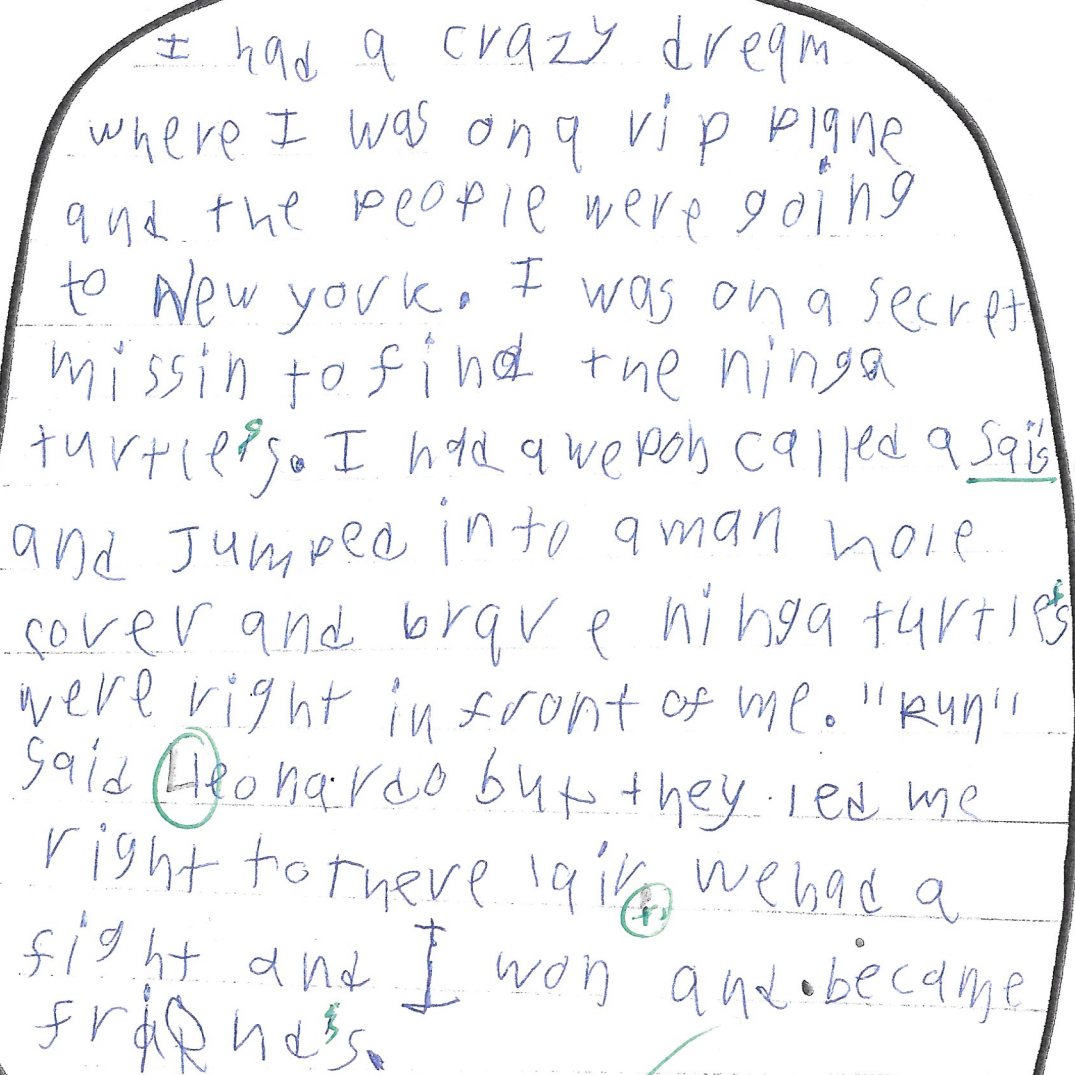 I had a crazy dream
where I was on a vip plane
and the people were going
to New york. I was on a secret
missin to find the ninga
turtle's. I had a wepon called a sais
and Jumped into a man hole
cover and brave ninga turtle's
were right in front of me. "Run"
said Leonardo but they led me
right to there lair. we had a
fight and I won and became
friend's.